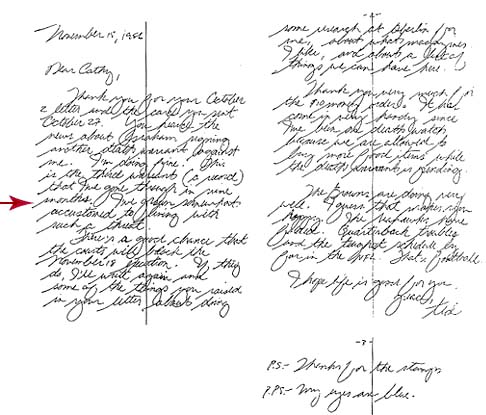 November 15, 1986
Dear Cathy,
Thank you for your October
2 letter and the card you sent
October 27. You heard the
news about Graham signing
another death warrant against
me. I'm doing fine. This
is the third warrant (a record)
that I've gone through in nine
months. I've grown somewhat
accustomed to living with
such a threat.
There is a good chance that
the courts will block the
November 18 execution. If they
do, I'll write again and
some of the things you raised
in your letter, about doing
-2-
some research at Oberlin for
me, about what magazines
I like, and about a list of
things we can have here.
Thank you very much for
the money order. It has
come in very handy since
I've been on death watch
because we are allowed to
buy more food items while
the death warrant is pending.
The Browns are doing very
well. I guess that makes you
happy. The Seahawks have
folded. Quarterback troubles
and the toughest schedule by
far in the . That's football.
I hope life is good for you.
Peace,
Ted
-3-
P.S.- Thanks for the stamps
P.P.S.- My eyes are blue.